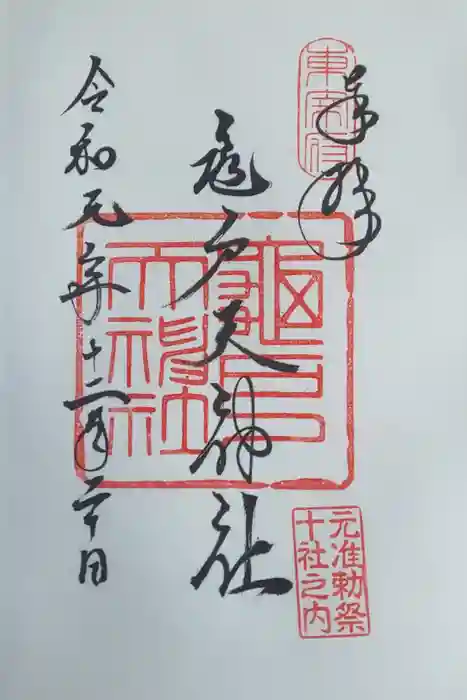 東宰府
奉拝
亀戸天神社
令和元年十二月二十日
龜戸
天神社
元准勅祭
十社之内